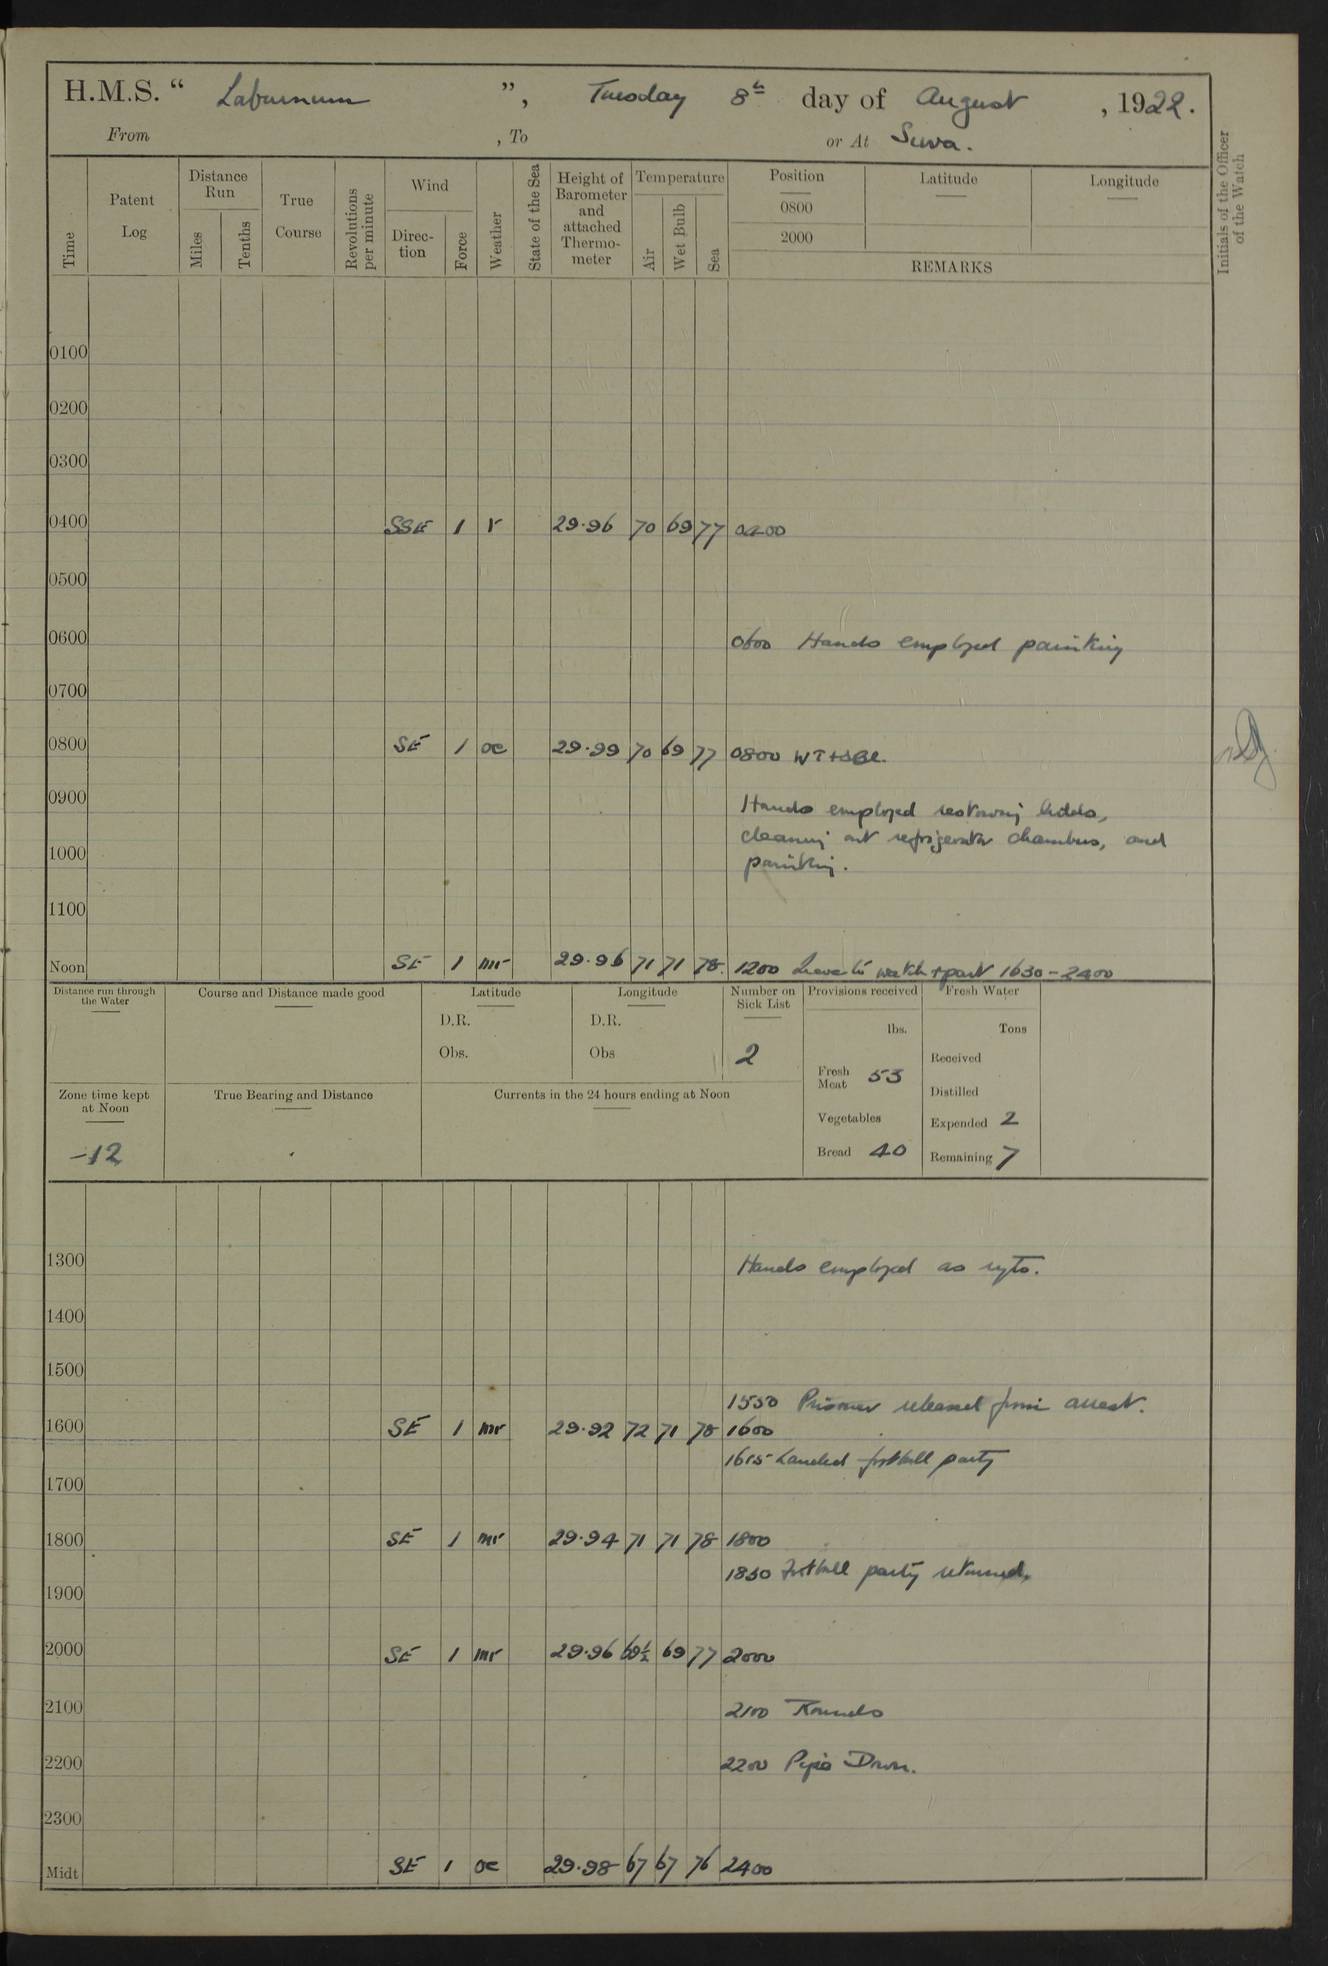 H.M.S. “ Laburnum ”, Tuesday 8th day of August , 1922.
From , To or At Suva.
Time
Patent Log
Distance Run
Miles
Tenths
True Course
Revolutions per minute
Wind
Direc- tion
Force
Weather
State of the Sea
Height of Barometer and attached Thermo- meter
Temperature
Air
Wet Bulb
Sea
Position
0800
2000
Latitude
Longitude
REMARKS
Initials of the Officer of the Watch
0100
0200
0300
0400 SSE 1 r 29.96 70 69 77 0400
0500
0600 0600 Hands employed painting
0700
0800 SE 1 oc 29.99 70 69 77 0800
0900 Hands employed restowing
cleaning out refrigerator chambers, and
1000 painting.
1100
Noon SE 1 mr 29.96 71 71 78. 1200 Leave to watch + part 1630-2400
Distance run through the Water
Course and Distance made good
Latitude
D.R.
Obs.
Longitude
D.R.
Obs
Number on Sick List
2
Provisions received
lbs.
Fresh Meat 53
Vegetables
Bread 40
Fresh Water
Tons
Received
Distilled
Expended 2
Remaining 7
Zone time kept at Noon
-12
True Bearing and Distance
Currents in the 24 hours ending at Noon
1300 Hands employed as reqte.
1400
1500
1550 Prisoner released from arrest.
1600 SE 1 mr 29.92 72 71 78 1600
1615 Landed football party
1700
1800 SE 1 mr 29.94 71 71 78 1800
1830 Football party returned.
1900
2000 SE 1 mr 29.96 69½ 69 77 2000
2100 2100 Rounds
2200 2200 Pipe Down.
2300
Midt SE 1 oc 29.98 67 67 76 2400